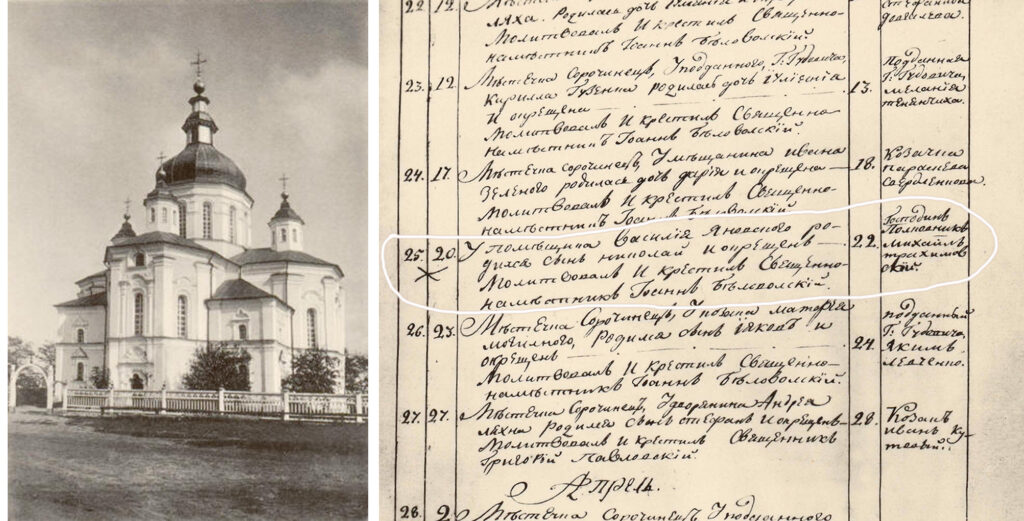 22 12
ляха. родилась дочь
Молитвовалъ И крестилъ Священно-
намѣстникъ Іоаннъ Бѣловолскій.
23. 12. Мѣстечка Сорочинецъ, У подданного, Г: Гудовича,
Кирилла Губенка родилась дочь
И окрещена
Молитвовалъ И крестилъ Священно
намѣстникъ Іоаннъ Бѣловолскій.
13.
Подданная
Г: Гудовича,
меланія
24. 17. Мѣстечка сорочинецъ, У мѣщанина ивана
Зеленого родилась дочь дарія и окрещена
Молитвовалъ И крестилъ Священно-
намѣстникъ Іоаннъ Бѣловолскій.
18.
Козачка
параскева
25. 20. У помѣщика Василія Яновского ро-
дился сынъ николай и окрещенъ
Молитвовалъ И крестилъ Священно-
намѣстникъ Іоаннъ Бѣловолскій.
22.
Господинъ
Полковникъ
михаилъ
трахимов
скій.
26. 23. Мѣстечка Сорочинецъ, У козака матфея
могилного, Родился сынъ іяковъ и
окрещенъ
Молитвовалъ И крестилъ Священно-
намѣстникъ Іоаннъ Бѣловолскій.
24.
подданный
Г: Гудовича,
якимъ
левченко.
27. 27. Мѣстечка Сорочинецъ, У дворянина Андрея
родился сынъ стефанъ и окрещенъ
Молитвовалъ И крестилъ Священникъ
Григорій Павловскій.
28.
Козакъ
иванъ ку
Апрель.
28. 2 Мѣстечка Сорочинецъ У подданного